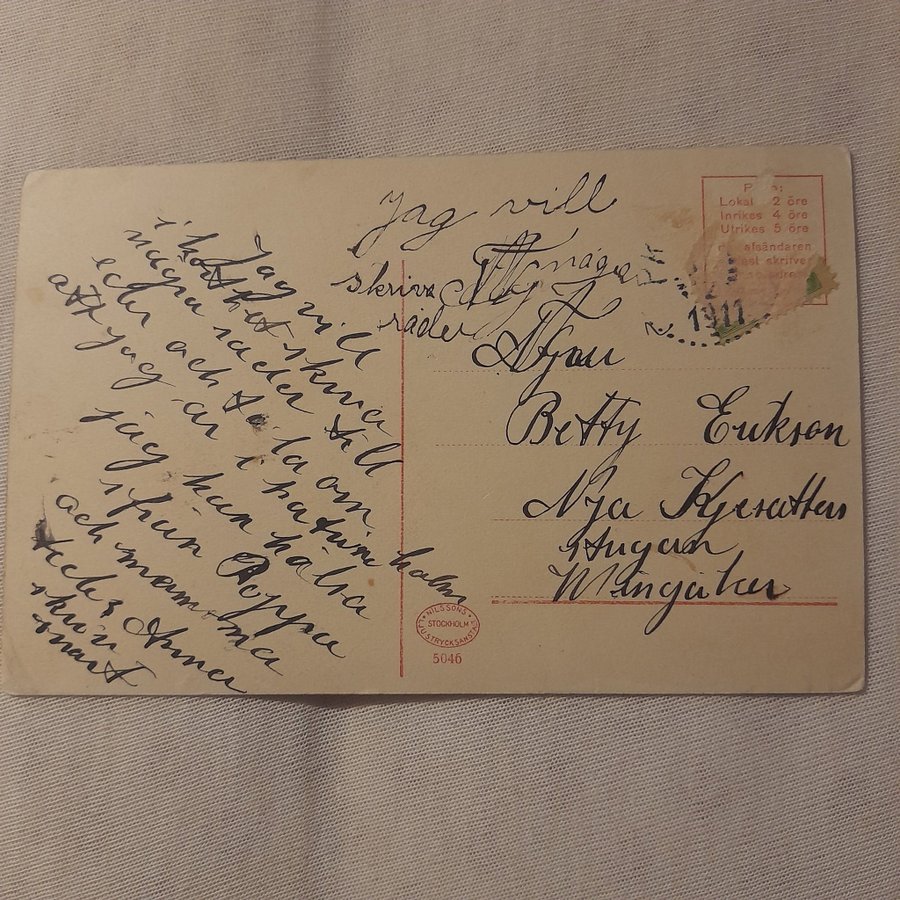 Jag vill
skriva några
rader
Jag vill
i kortet skriva
några rader till
eder och tala om
att jag är i Katrineholm
jag kan hälsa
ifrån Pappa
och mamma
Anna
skriv
snart
Porto:
Lokal 2 öre
Inrikes 4 öre
Utrikes 5 öre
afsändaren
skrifver
1911
Fru
Betty Erikson
Nya
stugan
Wingåker
NILSSONS
STOCKHOLM
LJUSTRYCKSANSTALT
5046